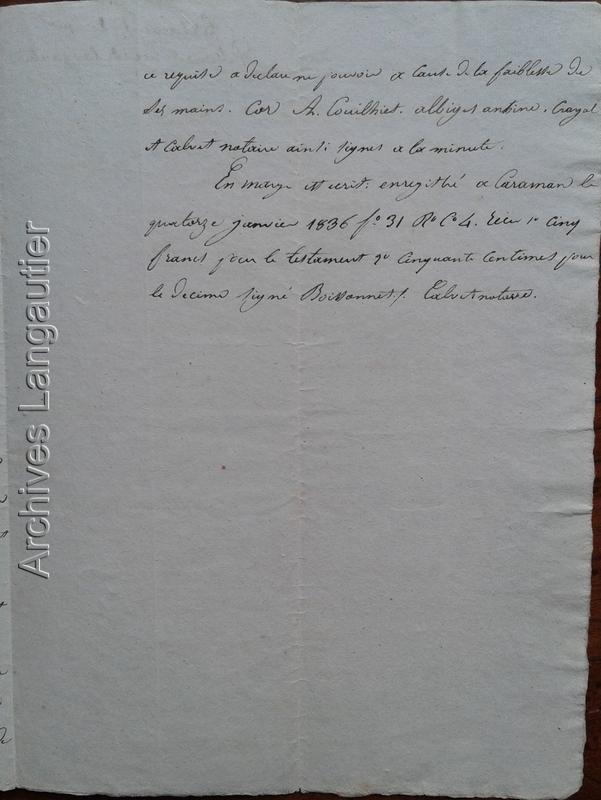 ce requise a declare ne pouvoir a cause de la faiblesse de
ses mains. Cor A. Couilhiet. albiges antoine. Crayol
et Calvet notaire ainsi signes a la minute.
En marge est ecrit: enregistré a Caraman le
quatorze janvier 1836 fo. 31 Ro Co 4. recu 1o cinq
francs pour le testament 2o cinquante centimes pour
le decime signé Boissonnet./. Calvet notaire.
Archives Langautier